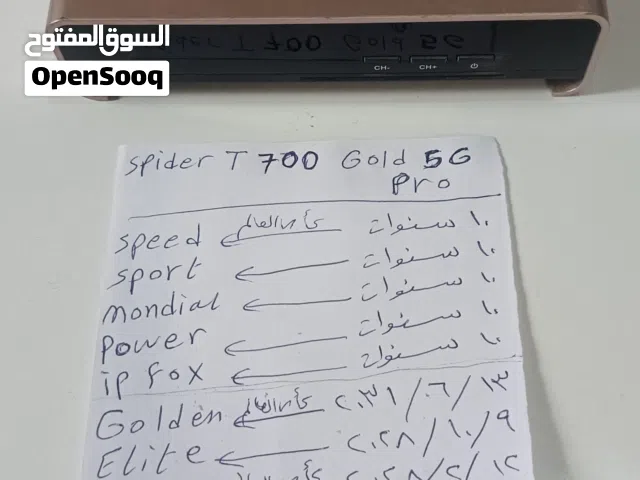 السوق المفتوح
OpenSooq
T 700 Gold 5G
CH- CH+
spider T 700 Gold 5G
Pro
speed كأس العالم ١٠ سنوات
sport ١٠ سنوات
mondial ١٠ سنوات
power ١٠ سنوات
ip fox ١٠ سنوات
Golden كأس العالم ٢٠٣١/٠٦/١٣
Elite ٢٠٢٨/١٠/٩